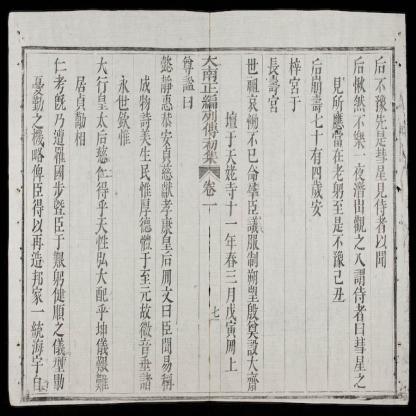 后不豫先是彗星見侍者以聞
后愀然不樂一夜潜出觀之入謂侍者曰彗星之
見所應當在老躬至是不豫己丑
后崩壽七十有四歲安
梓宮于
長壽宮
世祖哀慟不已命羣臣議服制朔望殷奠設大齋
壇于天姥寺十一年春三月戊寅冊上
大南正編列傳初集 卷一 七
尊諡曰
懿靜惠恭安貞慈獻孝康皇后冊文曰臣聞易稱
成物詩美生民惟厚德體于至元故徽音垂諸
永世欽惟
大行皇太后慈仁得乎天性弘大配乎坤儀艱難
居貞勤相
仁考旣乃遭羅國步曁臣于艱躬健順之儀型勤
憂勤之機略俾臣得以再造邦家一統海宇自